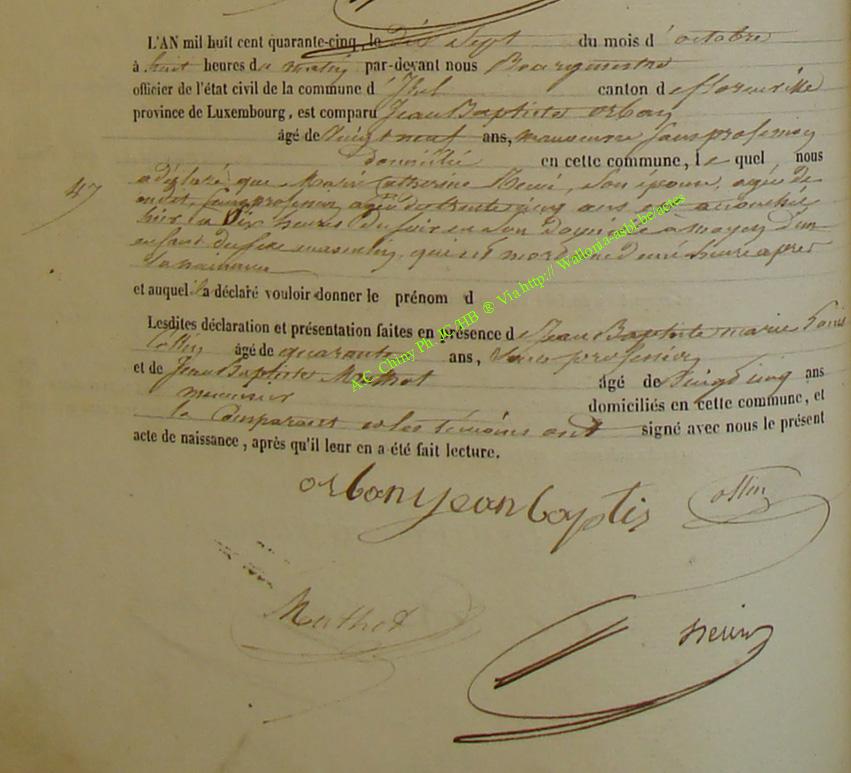 L'AN mil huit cent quarante-cinq, le dix sept du mois d'octobre
à huit heures du matin par-devant nous Bourgmestre
officier de l'état civil de la commune d'Izel canton de florenville
province de Luxembourg, est comparu Jean Baptiste orban
âgé de vingt neuf ans, sans profession
domicilié en cette commune, le quel nous
47
a déclaré que Marie Catherine son épouse, agée de
sans profession agée de trente cinq ans est accouchée
hier a dix heures du soir en son domicile d'un
enfant du sexe masculin, qui est mort une demi heure apres
sa naissance
et auquel il a déclaré vouloir donner le prénom d
Lesdites déclaration et présentation faites en présence de Jean Baptiste marie Louis
Collin âgé de quarante ans, sans profession
et de Jean Baptiste Mathot âgé de vingt cinq ans
domiciliés en cette commune, et
le Comparant et les témoins ont signé avec nous le présent
acte de naissance, après qu'il leur en a été fait lecture.
orban jean baptis
ollin
Mathot
A.C. Chiny Ph. JC/HB ® Via http:// Wallonia-asbl.be/actes